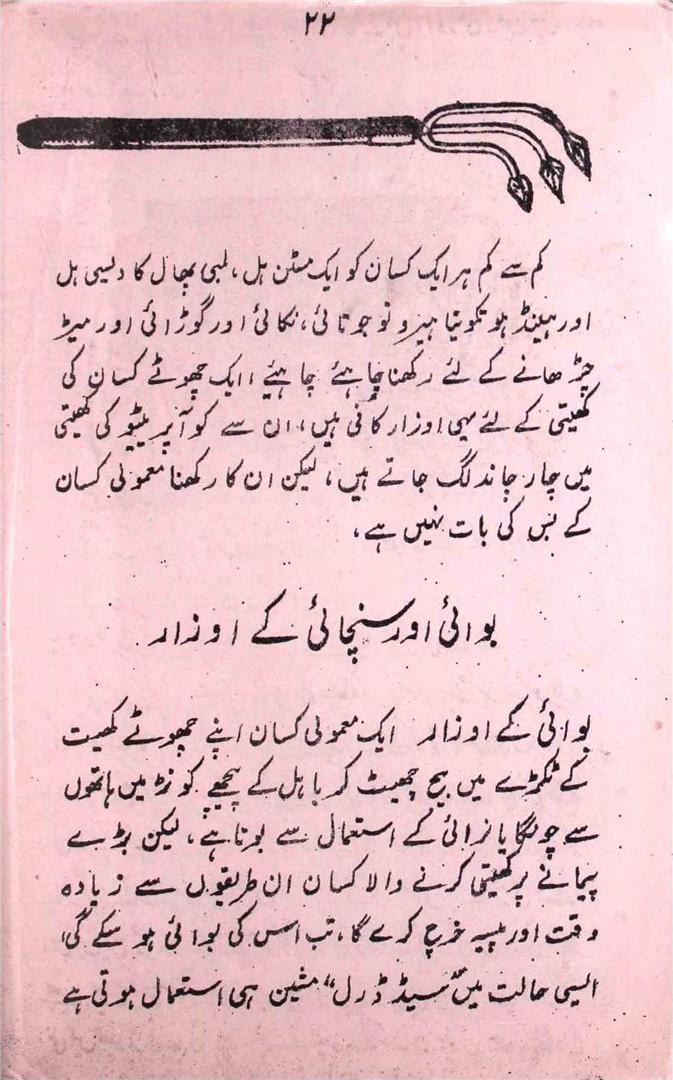 ۲۲
کم سے کم ہر ایک کسان کو ایک مسٹن ہل، لمبی پھال کا دیسی ہل
اور ہینڈ ہو تکونیا ہیرو نو جوتائی، نکائی اور گوڑائی اور میڑ
چڑھانے کے لئے رکھنا چاہئے چاہئیے، ایک چھوٹے کسان کی
کھیتی کے لئے یہی اوزار کافی ہیں، ان سے کوآپریٹیو کی کھیتی
میں چار چاند لگ جاتے ہیں، لیکن ان کا رکھنا معمولی کسان
کے بس کی بات نہیں ہے،
بوائی اور سنچائی کے اوزار
بوائی کے اوزار ایک معمولی کسان اپنے چھوٹے کھیت
کے ٹکڑے میں بیج چھیٹ کر یا ہل کے پیچھے کونڑ میں ہاتھوں
سے چونگا یا نرائی کے استعمال سے بوتا ہے، لیکن بڑے
پیمانے پر کھیتی کرنے والا کسان ان طریقوں سے زیادہ
وقت اور پیسہ خرچ کرے گا، تب اس کی بوائی ہو سکے گی،
ایسی حالت میں “سیڈ ڈرل“ مشین ہی استعمال ہوتی ہے